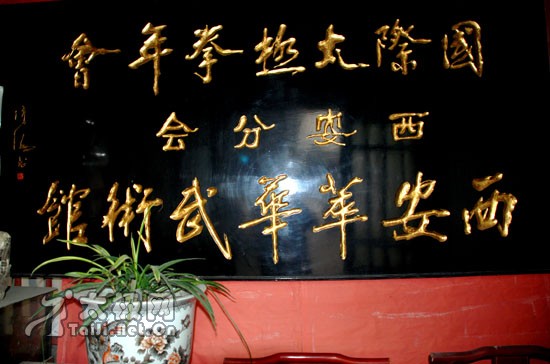 國際太極拳年會
西安分会
西安萃華武術館
太极网
Taiji.net.cn